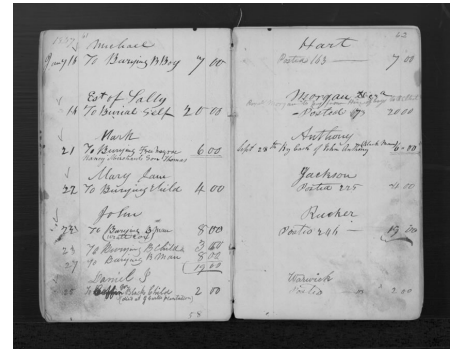 1857
Michael
Jany 15 To Burying B Boy 7 00
Est of Sally
18 To Burial Self 20 00
Mark
21 To Burying Free 6 00
Henry Michaels Son Thomas
Mary Jane
22 To Burying Child 4 00
John
23 To Burying B Man 8 00
23 To Burying B Child 3 00
27 To Burying B Man 8 00
19 00
Daniel J
28 To Coffin Black Child 2 00
58
Hart
Posted 163 7 00
Morgan
Posted 20 00
Anthony
Sept 28th By Cash of John Anthony Black Man 6 00
Jackson
Posted 225 4 00
Rucker
Posted 246 19 00
Warwick
Posted 2 00